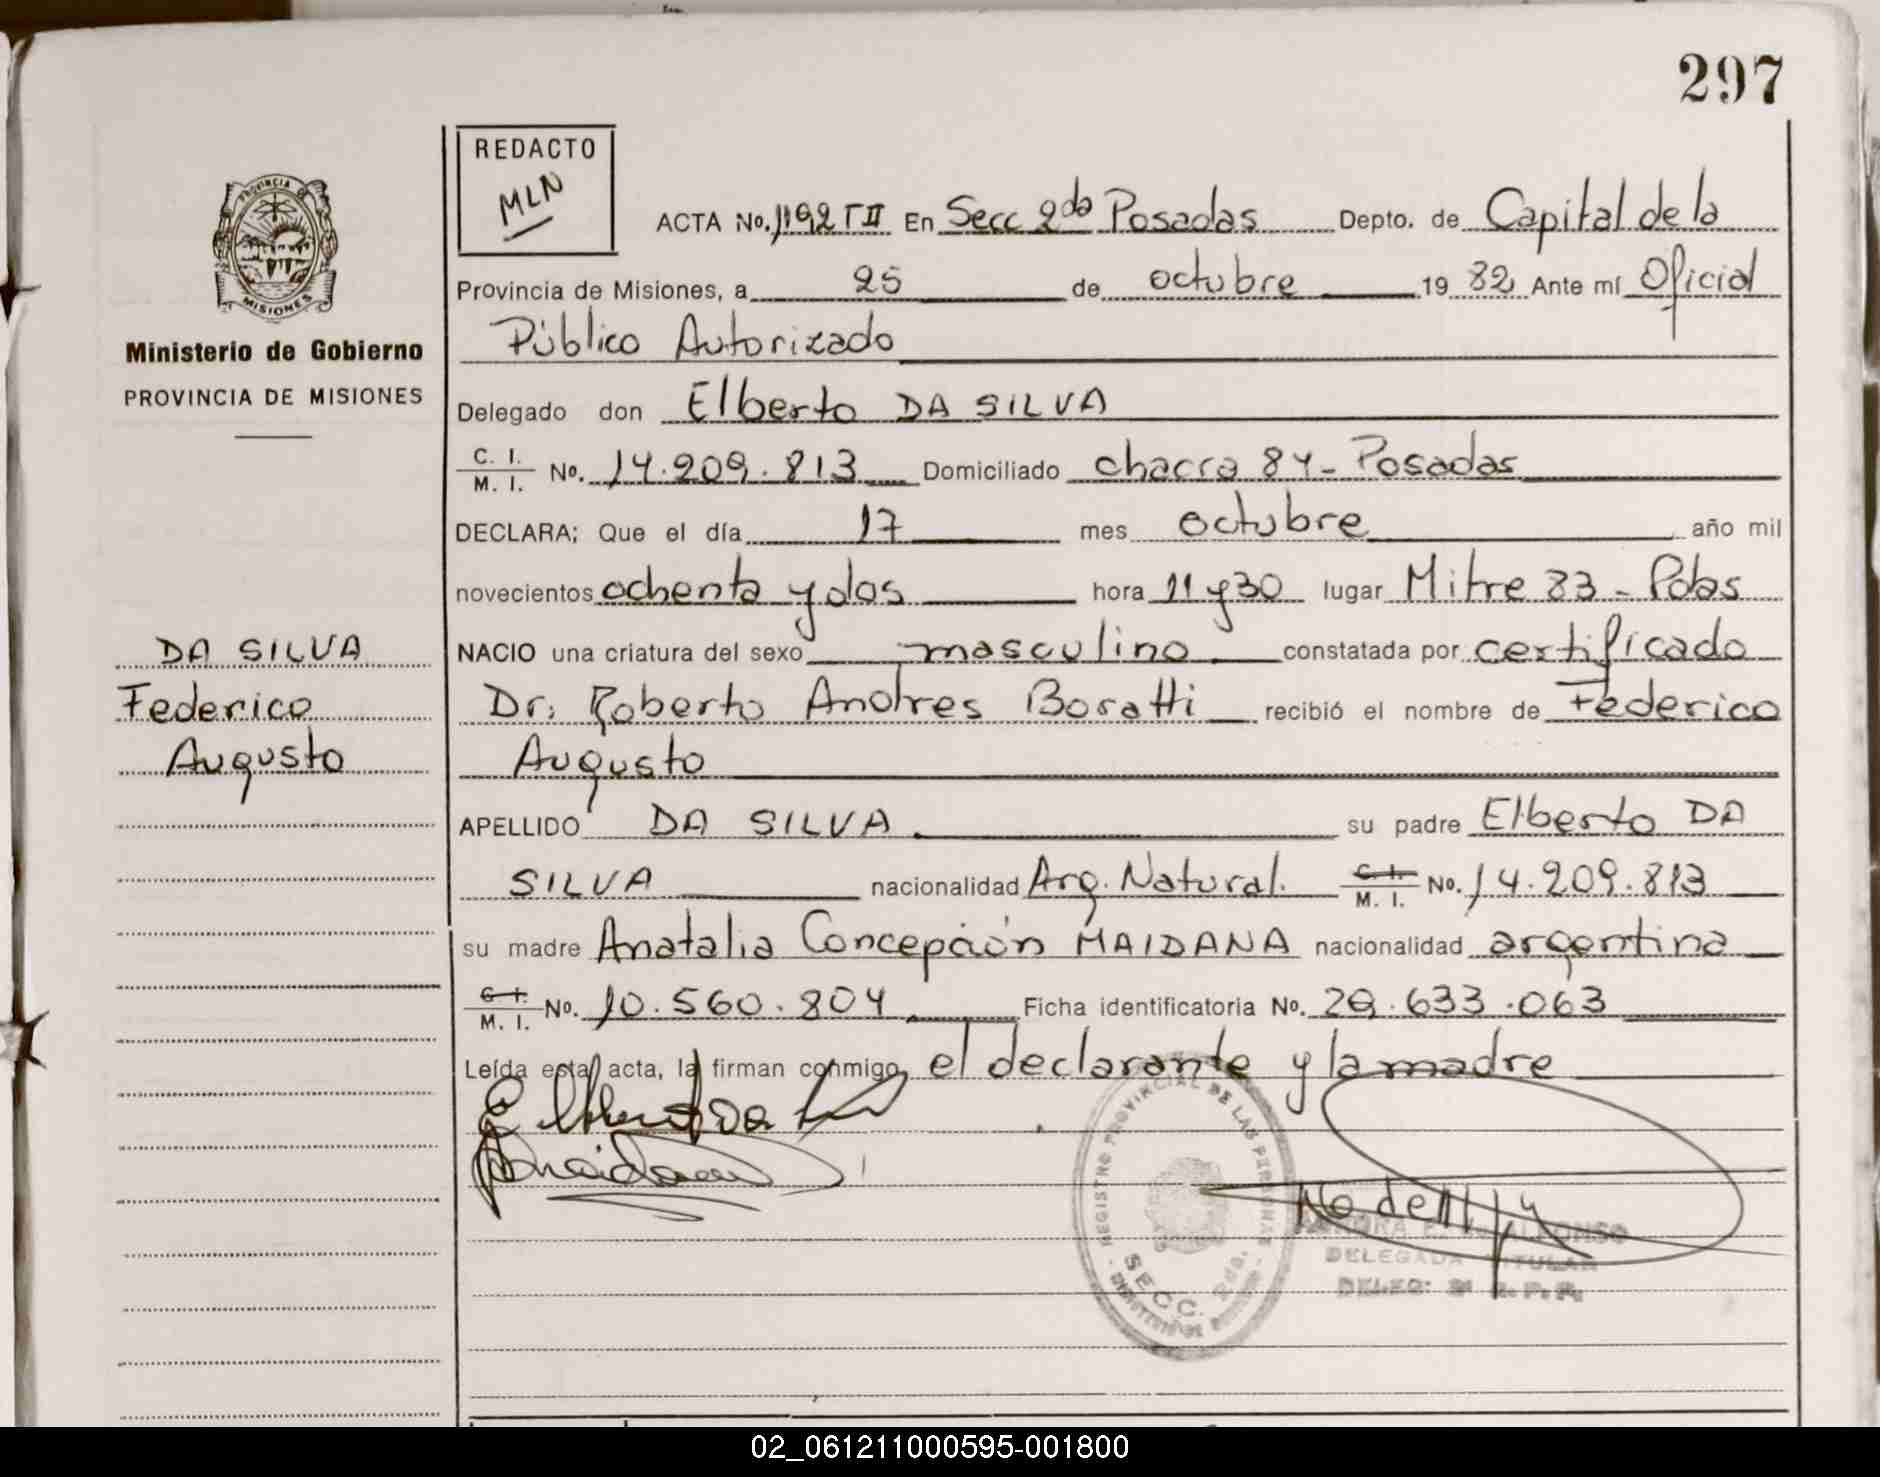 297
REDACTO
MLN
PROVINCIA DE
MISIONES
Ministerio de Gobierno
PROVINCIA DE MISIONES
ACTA No. 1192 T II En Secc 2da Posadas Depto. de Capital de la
Provincia de Misiones, a 25 de octubre 1982 Ante mí Oficial
Público Autorizado
Delegado don Elberto DA SILVA
C. I.
M. I. No. 14.209.813 Domiciliado chacra 84 - Posadas
DECLARA; Que el día 17 mes octubre año mil
novecientos ochenta y dos hora 11 y 30 lugar Mitre 83 - Pdas
NACIO una criatura del sexo masculino constatada por certificado
Dr. Roberto Andres Boratti recibió el nombre de Federico
Augusto
DA SILVA
Federico
Augusto
APELLIDO DA SILVA su padre Elberto DA
SILVA nacionalidad Arg. Natural. C. I. M. I. No. 14.209.813
su madre Anatalia Concepción MAIDANA nacionalidad argentina
C. I.
M. I. No. 10.560.804 Ficha identificatoria No. 29.633.063
Leída esta acta, la firman conmigo, el declarante y la madre
REGISTRO PROVINCIAL DE LAS PERSONAS
SECC. 2da.
DELEGADA TITULAR
02_061211000595-001800